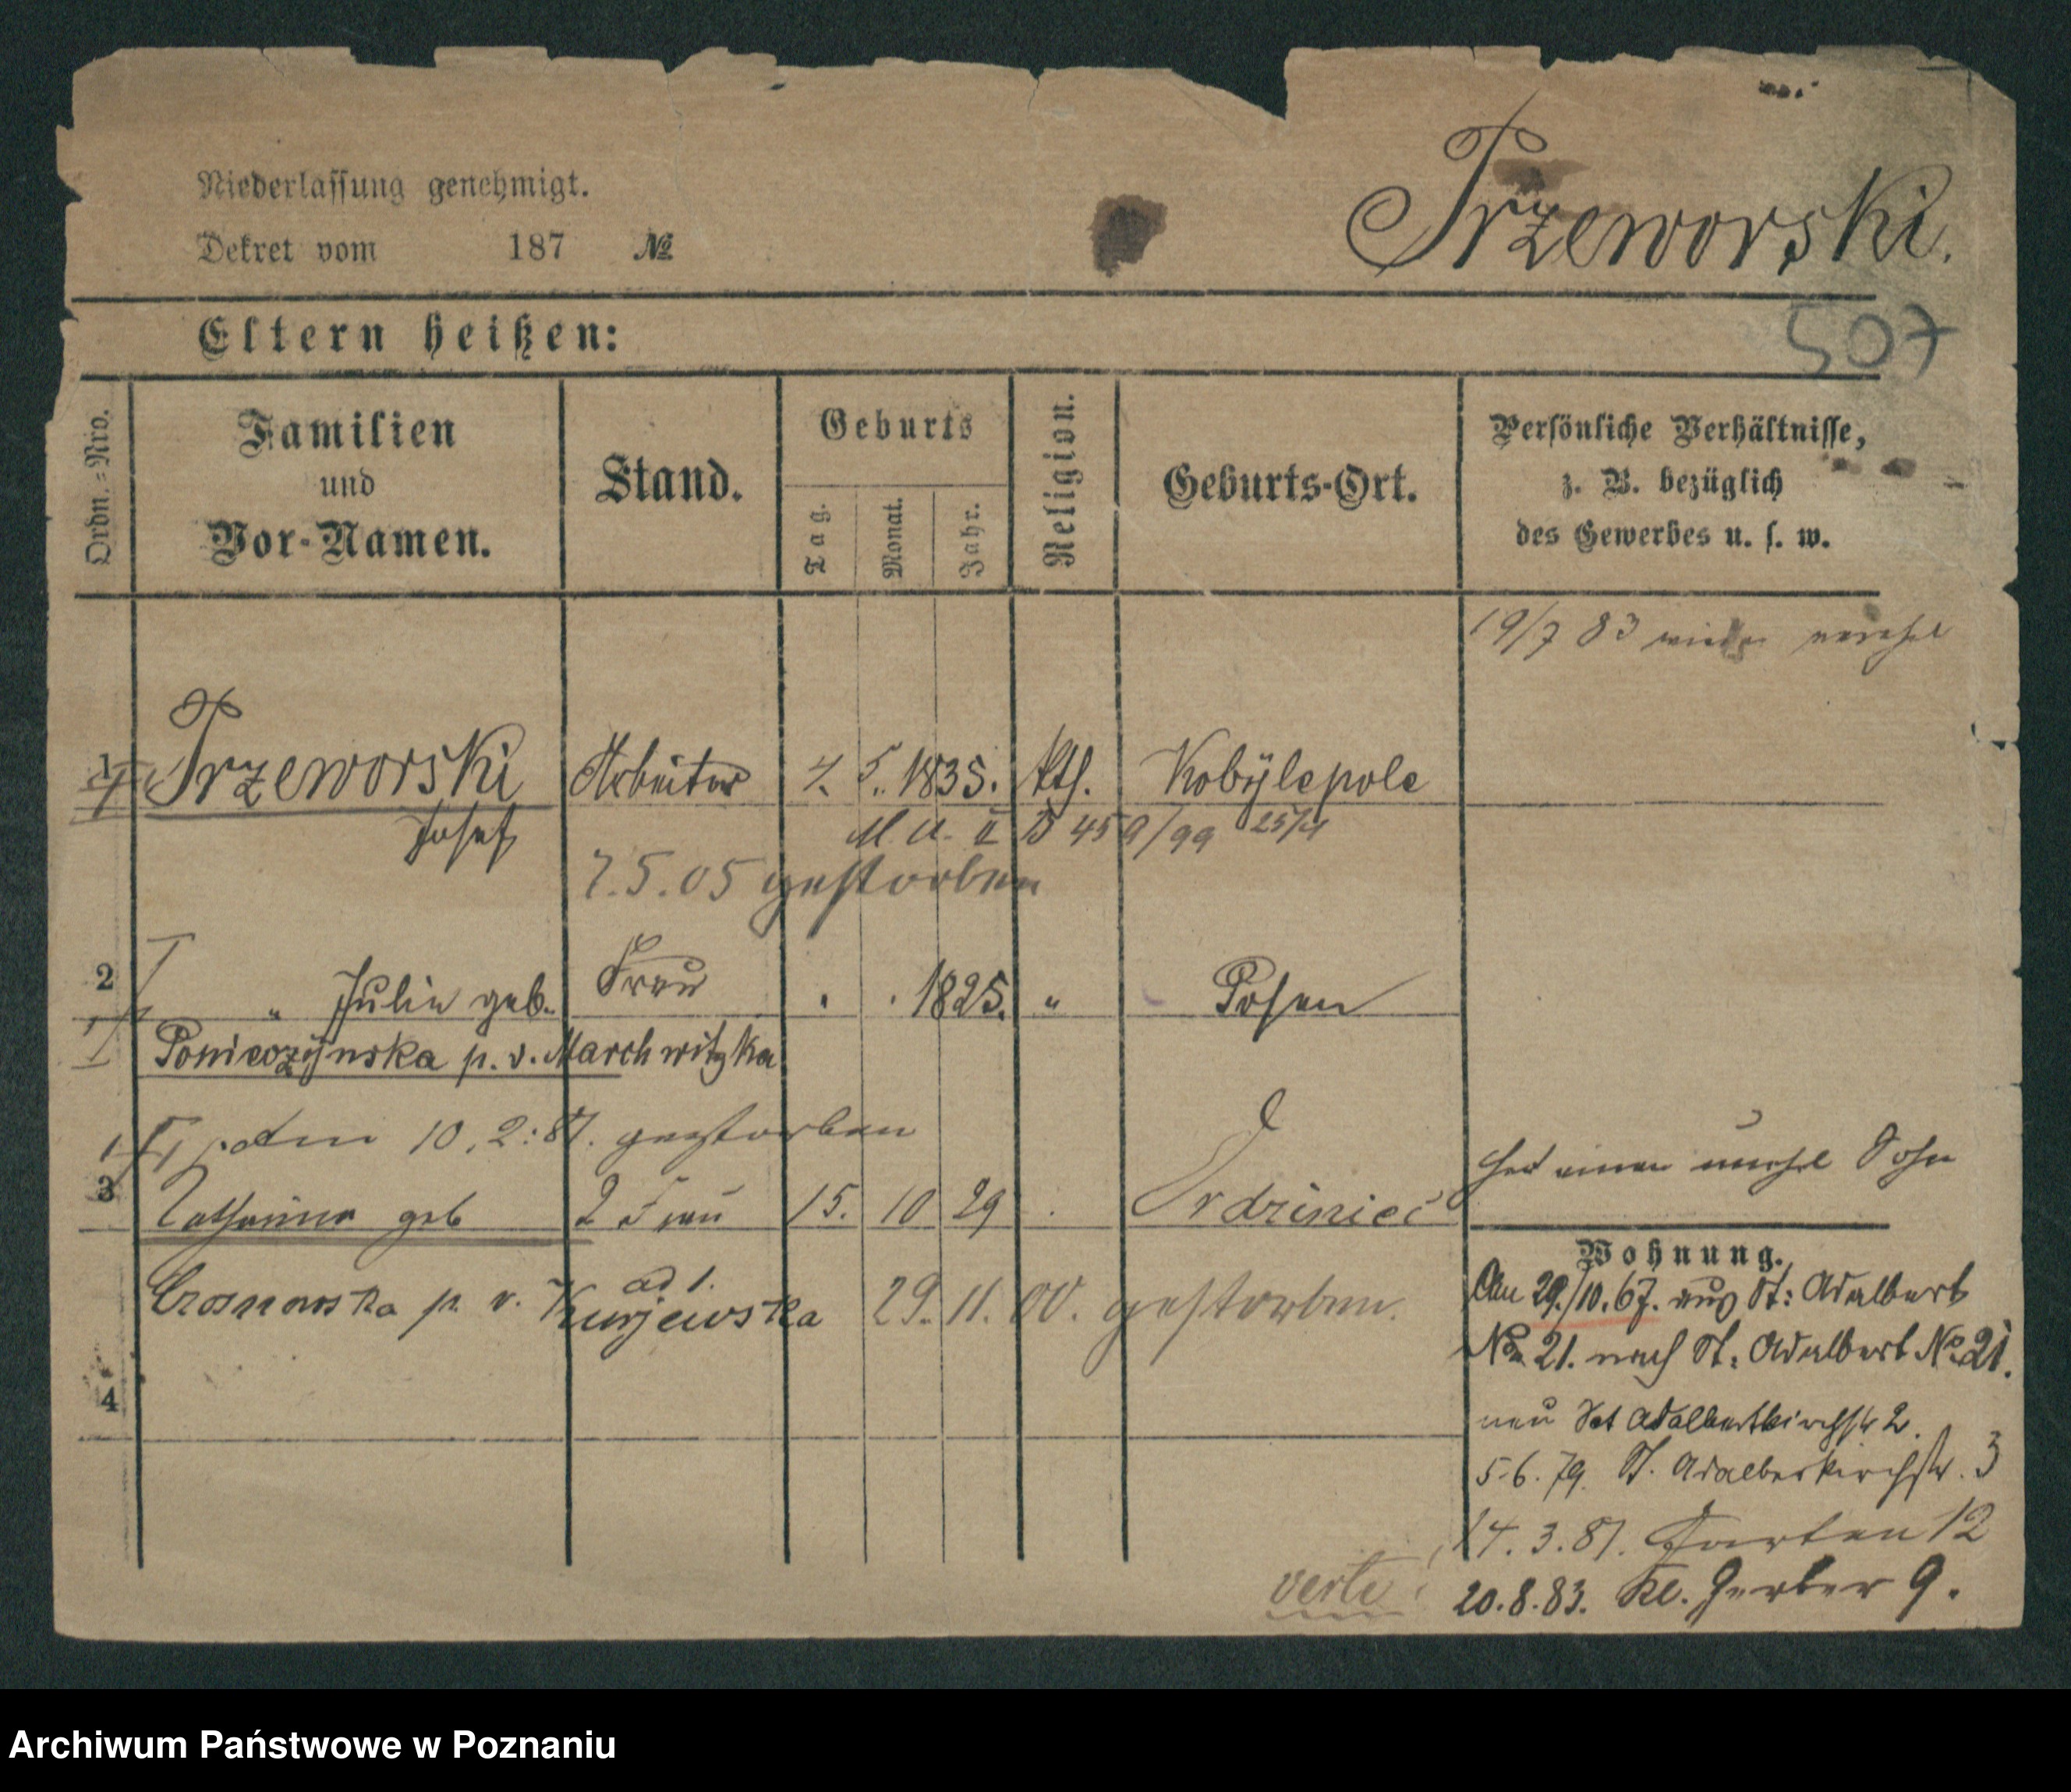 Niederlassung genehmigt.
Dekret vom 187 №
Przeworski.
507
Eltern heißen:
Ordn.=Nro.
Familien
und
Vor-Namen.
Stand.
Geburts
Tag.
Monat.
Jahr.
Religion.
Geburts-Ort.
Persönliche Verhältnisse,
z. B. bezüglich
des Gewerbes u. s. w.
19/7 83 wieder
1 Przeworski Arbeiter 7. 5. 1835. kth. Kobÿlepole
Josef
M. A. II B 459/99 25/4
7.5.05 gestorben
2 " Julie geb. Frau . . 1825. " Posen
p. v. Marchwitzka
10.2.:87. gestorben
hat einen unehel Sohn
3 Catharina geb 2 Frau 15. 10 29
p. v. Kurjewska
ad 1. 29.11.00. gestorben.
Wohnung.
Am 29./10.67. aus St: Adalbert
No 21. nach St: Adalbert No 21.
4
neu Sct Adalbertkirchstr 2.
5.6.79. St. Adalbertkirchstr. 3
14.3.81. Garten 12
20.8.83. Kl. Gerber 9.
verte
Archiwum Państwowe w Poznaniu